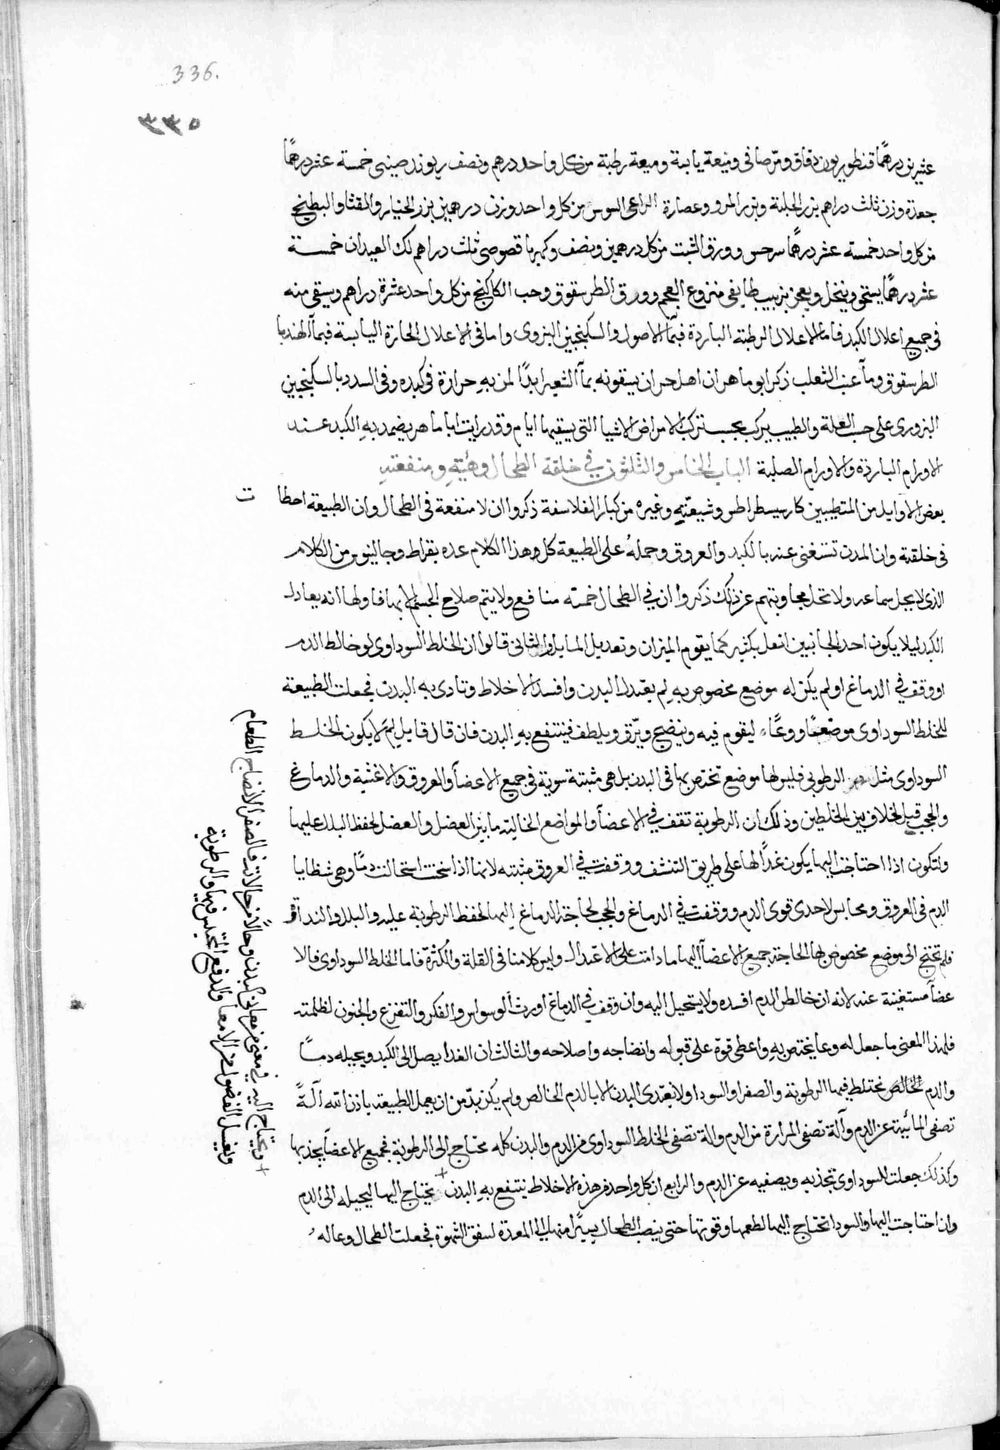 336.
٣٣٥
عشرين درهما قنطوريون دقاق ومر صافى وميعة يابسة وميعة رطبة من كل واحد درهم ونصف ريوند صينى خمسة عشر درهما
جعدة وزن ثلث دراهم بزر الحلبة وبزر المرو وعصارة الراعى السوس من كل واحد وزن درهمين بزر الخيار والقثا والبطيخ
من كل واحد خمسة عشر درهما سرخس وورق الشبت من كل درهمين ونصف وكهربا قصوصى ثلث دراهم لك العيدان خمسة
عشر درهما يستقى وينخل ويعجن بزبيب طايفى منزوع العجم وورق الطرسقوق وحب الكاكنج من كل واحد عشرة دراهم ويسقى منه
فى جميع اعلال الكبد فاما الاعلال الرطبة الباردة فبما الاصول والسكنجبين البزورى واما فى الاعلال الحارة اليابسة فبما الهندبا
الطرسقوق وما عنب الثعلب ذكر ابو ماهر ان اهل حران يسقونه بما الشعير ابدا لمن به حرارة فى كبده وفى السدد بالسكنجبين
البزورى على حسب العلة والطبيب يركب بحسب تركب الامراض الاشيا التى يسقيها ايام وقد رايت ابا ماهر يضمد به الكبد عند
الاورام الباردة والاورام الصلبة الباب الخامس والثلثون فى خلقة الطحال وهيئته ومنفعته
بعض الاوايل من المتطببين كارسيسطراطس وشيعته وغيره من كبار الفلاسفة ذكروا ان لا منفعة فى الطحال وان الطبيعة اخطا ت
فى خلقته وان البدن تستغنى عنه بالكبد والعروق وحمله على الطبيعة كل وهذا الكلام عده بقراط وجالينوس من الكلام
الذى لا يحل سماعه ولا تخل وبتهم عن ذلك ذكروا ان فى الطحال خمسة منافع ولا يتم صلاح الجسم الا بها فاولها انه يعادل
الكبد ليلا يكون احد الجانبين اثقل بكثير كما يقوم الميزان وتعديل المايل والثانى قالوا ان الخلط السوداوى لو خالط الدم
او وقف فى الدماغ او لم يكن له موضع مخصوص به لم يغتد البدن وافسد الاخلاط وتادى به البدن فجعلت الطبيعة
للخلط السوداوى موضعا ووعاء ليقوم فيه وينضج ويرق ويلطف فينتفع به البدن فان قال قايل لم لا يكون الخلط
السوداوى مثل الرطوبى فليس لها موضع تختص بها فى البدن بل هى مثبتة سوية فى جميع الاعضا والعروق والاغشية والدماغ
والحجب قيل الخلاف بين الخلطين وذلك ان الرطوبة تقف فى الاعضا والمواضع الخالية ما بين العضل والعضل لحفظ البلد عليها
ولتكون اذا احتاجت اليها يكون غذا لها على طريق التنشف ووقفت فى العروق مثبتة لانها اذا سخنت استحالت دما وهى شظايا
الدم فى العروق ومحابس لاحدى قوى الدم ووقفت فى الدماغ والحجب لحاجة الدماغ اليها لحفظ الرطوبة عليه والبلد والنداوة
فلم تحتج الى موضع مخصوص بها لحاجة جميع الاعضا اليها ما دامت على الاعتدال وليس كلامنا فى القلة والكثرة فاما الخلط السوداوى فالا
عضا مستغنية عنه لانه ان خالط الدم افسده ولا يستحيل اليه وان وقف فى الدماغ اورث الوسواس والفكر والتفزع والجنون لظلمته
فلهذا المعنى ما جعل له وعا يختص به واعطى قوة على قبوله وانضاجه واصلاحه والثالث ان الغذا يصل الى الكبد ويحيله دما
والدم الخالص تختلط فيها الرطوبة والصفرا والسودا ولا يغتدى البدن الا بالدم الخالص ولم يكن بد من ان يعمل الطبيعة باذن الله آلة
تصفى المائية عن الدم وآلة تصفى المرارة من الدم والة تصفى الخلط السوداوى من الدم والبدن كله محتاج الى الرطوبة فجميع الاعضا يجذبها
وكذلك جعلت للسوداوى تجذبه ويصفيه عن الدم والرابع ان كل واحد من هذه الاخلاط ينتفع به البدن يحتاج اليها ليحيله الى الدم
وان احتاجت اليها والسودا تحتاج اليها لطعمها وقوتها حتى ينصب الطحال يسيرا منها الى المعدة لسفق الشهوة فجعلت الطحال وعا له
ويحتاج اليه فى معنى من معانى البدن وحالا من حالاته فالصفرا لانضاج الطعام
وغسل الفضول من الامعا ولدفع المحتبس فيها والرطوبة